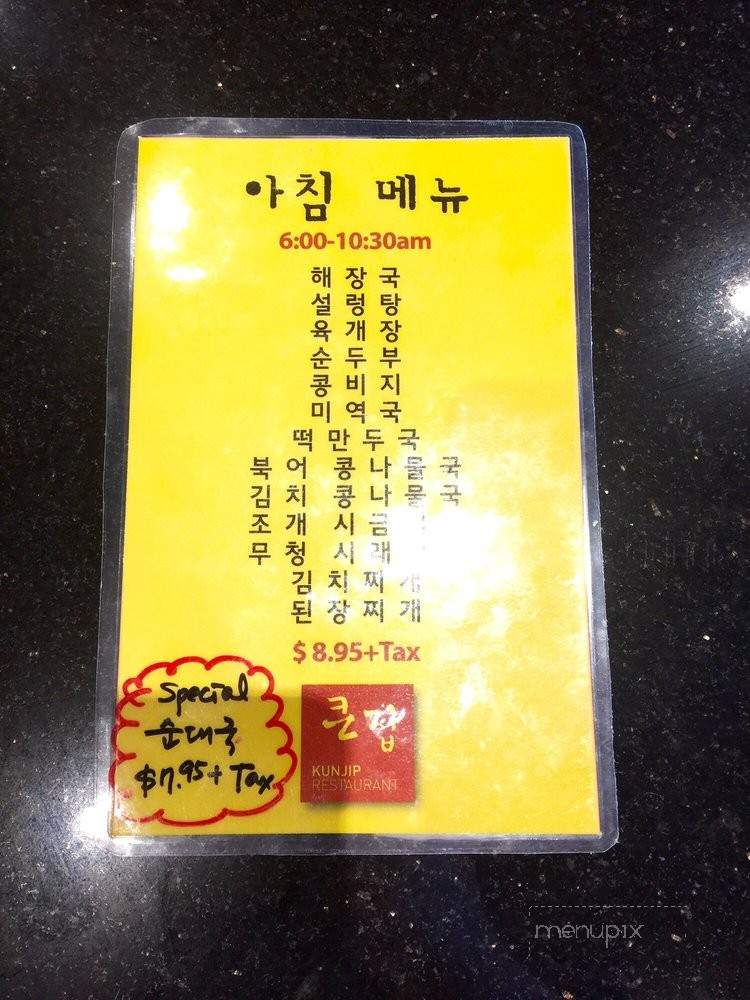 아침 메뉴
6:00-10:30am
해장국
설렁탕
육개장
순두부
콩비지
미역국
떡만두국
북어 콩나물국
김치 콩나물국
조개
무청
김치찌개
된장찌개
$ 8.95+Tax
Special
순대국
$7.95+ Tax
큰집
KUNJIP
RESTAURANT
menupix